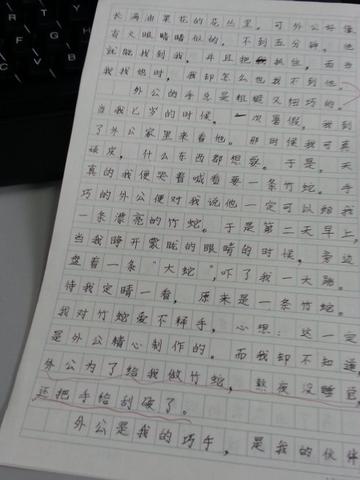 长满油菜花的花丛里。可外公好像
有火眼睛睛似的，不到五分钟。他
就能找到我，并且把我抓住，而当
我找他时，我却怎么也找不到他。
外公的手总是粗糙又细巧的。
当我七岁的时候，一次暑假，我到
了外公家里来看他。那时候我可真
顽皮，什么东西都想要。于是，天
真的我便哭着喊着要一条竹蛇。手
巧的外公便对我说他一定可以给我
一条漂亮的竹蛇。于是第二天早上，
当我睁开蒙眬的眼睛的时候，旁边
盘着一条“大蛇”，吓了我一大跳。
待我定睛一看，原来是一条竹蛇。
我对竹蛇爱不释手，心想：这一定
是外公精心制作的。而我却不知道，
外公为了给我做竹蛇，熬夜没睡觉
还把手给刮破了。
外公是我的巧手，是我的伙伴